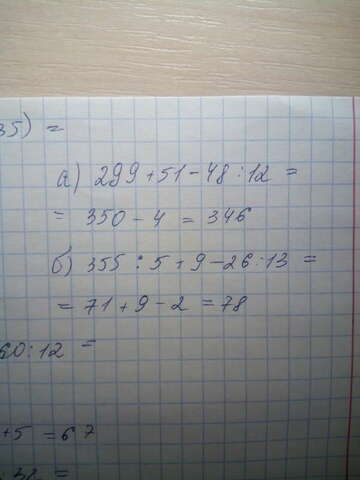 35) =
а) 299 + 51 - 48 : 12 =
= 350 - 4 = 346
б) 355 : 5 + 9 - 26 : 13 =
= 71 + 9 - 2 = 78
60 : 12 =
+ 5 = 67